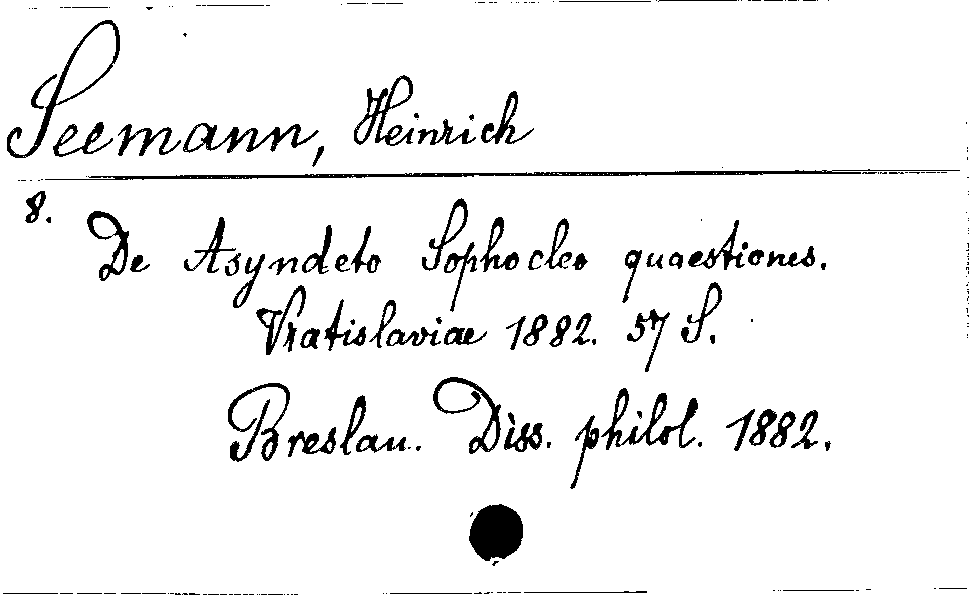 Seemann, Heinrich
8.
De Asyndeto Sophocleo quaestiones.
Vratislaviae 1882. 57 S.
Breslau. Diss. philol. 1882.